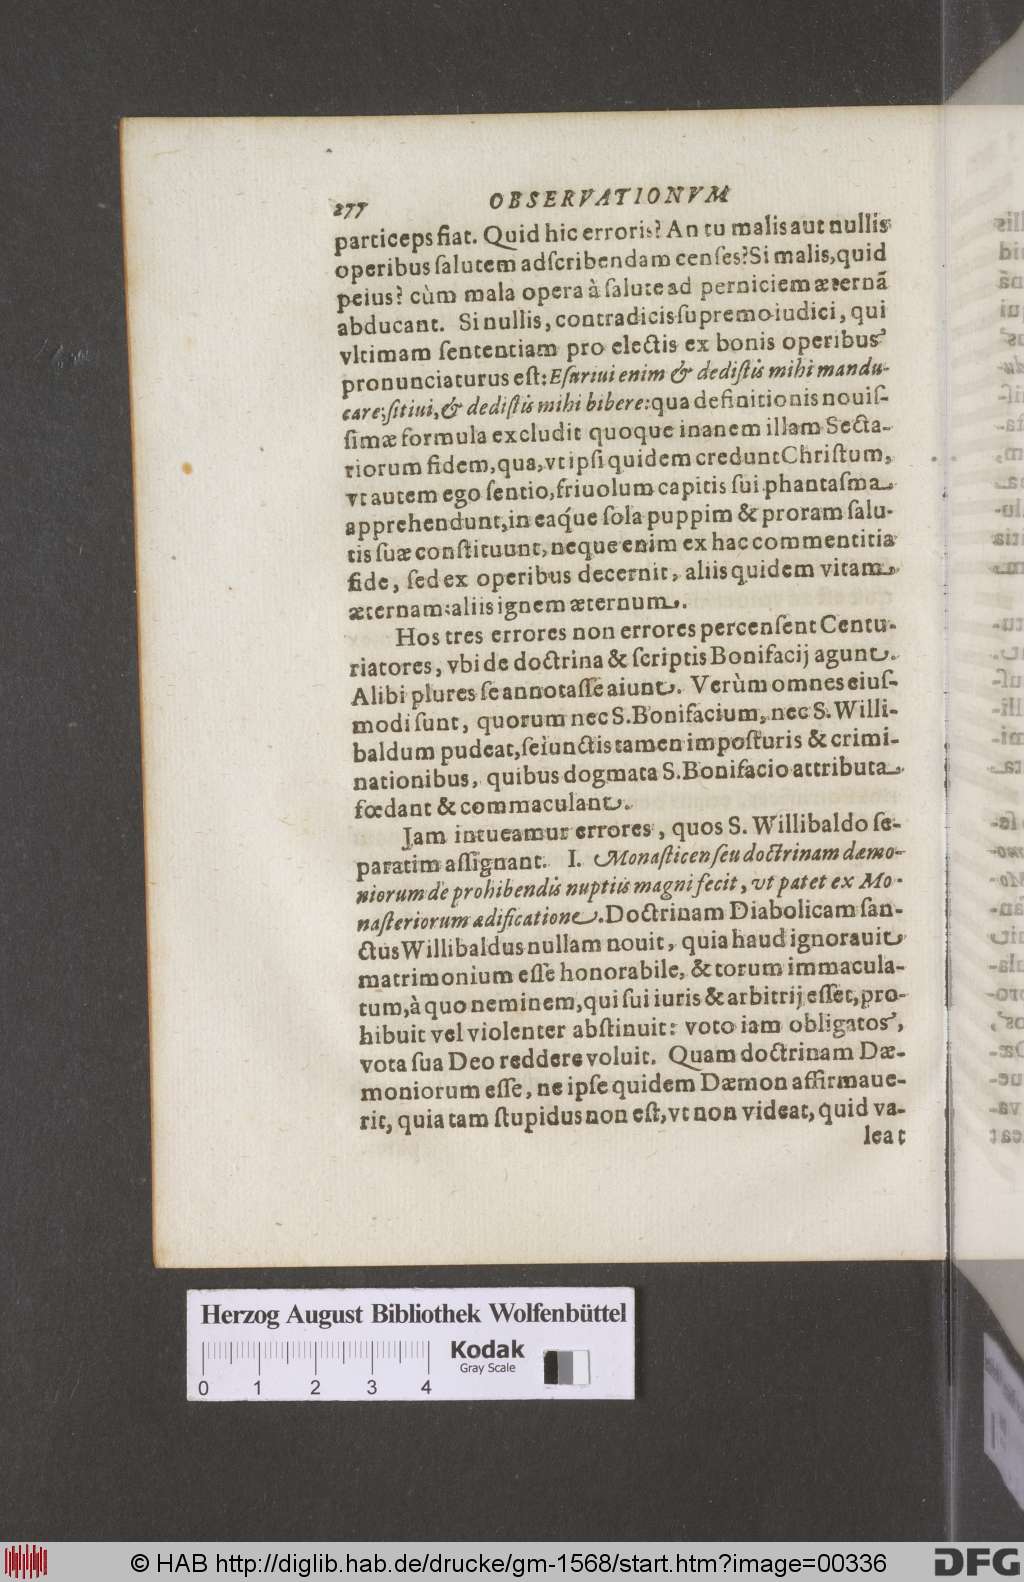 277 OBSERVATIONVM
particeps fiat. Quid hic erroris? An tu malis aut nullis
operibus salutem adscribendam censes? Si malis, quid
peius? cùm mala opera à salute ad perniciem æternã
abducant. Si nullis, contradicis supremo iudici, qui
vltimam sententiam pro electis ex bonis operibus
pronunciaturus est: Esuriui enim & dedistis mihi mandu-
care; sitiui, & dedistis mihi bibere: qua definitionis nouis-
simæ formula excludit quoque inanem illam Secta-
riorum fidem, qua, vt ipsi quidem credunt Christum,
vt autem ego sentio, friuolum capitis sui phantasma
apprehendunt, in eaq́ue sola puppim & proram salu-
tis suæ constituunt, neque enim ex hac commentitia
fide, sed ex operibus decernit, aliis quidem vitam
æternam: aliis ignem æternum.
Hos tres errores non errores percensent Centu-
riatores, vbi de doctrina & scriptis Bonifacij agunt.
Alibi plures se annotasse aiunt. Verùm omnes eius-
modi sunt, quorum nec S. Bonifacium, nec S. Willi-
baldum pudeat, seiunctis tamen imposturis & crimi-
nationibus, quibus dogmata S. Bonifacio attributa
fœdant & commaculant.
Jam intueamur errores, quos S. Willibaldo se-
paratim assignant. I. Monasticen seu doctrinam dæmo-
niorum de prohibendis nuptiis magni fecit, vt patet ex Mo-
nasteriorum ædificatione. Doctrinam Diabolicam san-
ctus Willibaldus nullam nouit, quia haud ignorauit
matrimonium esse honorabile, & torum immacula-
tum, à quo neminem, qui sui iuris & arbitrij esset, pro-
hibuit vel violenter abstinuit: voto iam obligatos,
vota sua Deo reddere voluit. Quam doctrinam Dæ-
moniorum esse, ne ipse quidem Dæmon affirmaue-
rit, quia tam stupidus non est, vt non videat, quid va-
leat
Herzog August Bibliothek Wolfenbüttel
Kodak
Gray Scale
0 1 2 3 4
© HAB http://diglib.hab.de/drucke/gm-1568/start.htm?image=00336
DFG